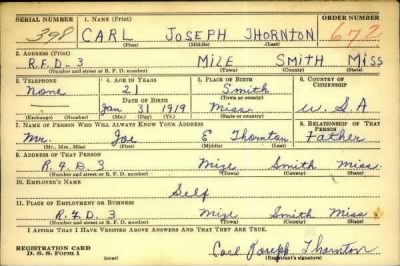 SERIAL NUMBER 1. NAME (Print) ORDER NUMBER
398 CARL JOSEPH THORNTON 672
(First) (Middle) (Last)
2. ADDRESS (Print)
R.F.D-3 MIZE SMITH MISS
(Number and street or R. F. D. number) (Town) (County) (State)
3. TELEPHONE 4. AGE IN YEARS 5. PLACE OF BIRTH 6. COUNTRY OF CITIZENSHIP
None 21 Smith
DATE OF BIRTH (Town or county)
Jan 31 1919 Miss. U.S.A
(Exchange) (Number) (Mo.) (Day) (Yr.) (State or country)
7. NAME OF PERSON WHO WILL ALWAYS KNOW YOUR ADDRESS 8. RELATIONSHIP OF THAT PERSON
Mr. Joe E Thornton Father
(Mr., Mrs., Miss) (First) (Middle) (Last)
9. ADDRESS OF THAT PERSON
R.F.D. 3 Mize Smith Miss.
(Number and street or R. F. D. number) (Town) (County) (State)
10. EMPLOYER'S NAME
Self
11. PLACE OF EMPLOYMENT OR BUSINESS
R.F.D 3 Mize Smith Miss
(Number and street or R. F. D. number) (Town) (County) (State)
I AFFIRM THAT I HAVE VERIFIED ABOVE ANSWERS AND THAT THEY ARE TRUE.
REGISTRATION CARD
D. S. S. Form 1 (over) Carl Joseph Thornton
(Registrant's signature)